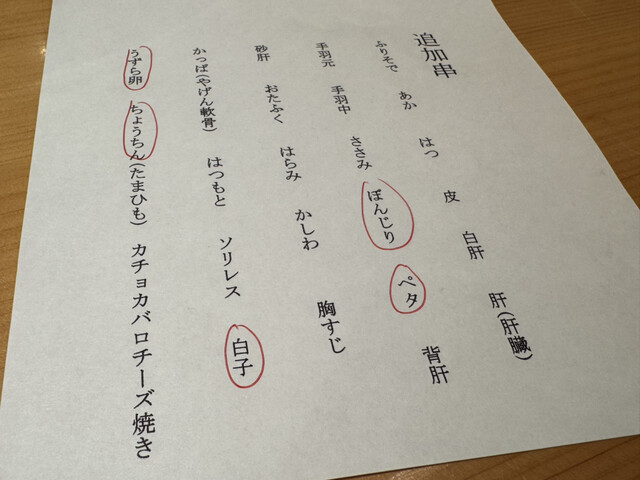 追加串
ふりそで　あか　はつ　皮　白肝　肝(肝臓)
手羽元　手羽中　ささみ　ぼんじり　ペタ　背肝
砂肝　おたふく　はらみ　かしわ　胸すじ
かっぱ(やげん軟骨)　はつもと　ソリレス　白子
うずら卵　ちょうちん(たまひも)　カチョカバロチーズ焼き